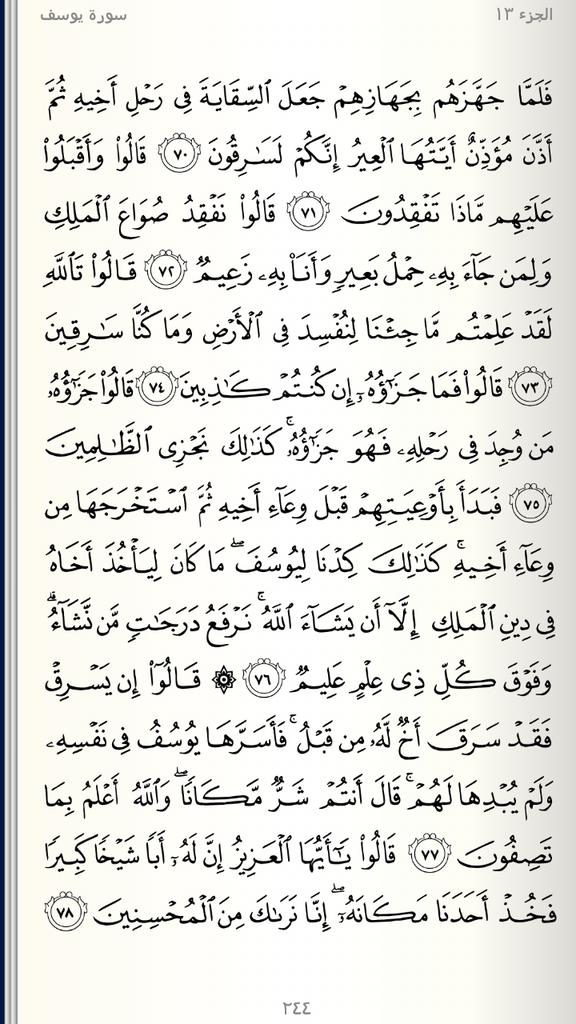 سورة يوسف الجزء ١٣
فَلَمَّا جَهَّزَهُم بِجَهَازِهِمْ جَعَلَ ٱلسِّقَايَةَ فِى رَحْلِ أَخِيهِ ثُمَّ
أَذَّنَ مُؤَذِّنٌ أَيَّتُهَا ٱلْعِيرُ إِنَّكُمْ لَسَٰرِقُونَ ٧٠ قَالُوا۟ وَأَقْبَلُوا۟
عَلَيْهِم مَّاذَا تَفْقِدُونَ ٧١ قَالُوا۟ نَفْقِدُ صُوَاعَ ٱلْمَلِكِ
وَلِمَن جَآءَ بِهِۦ حِمْلُ بَعِيرٍ وَأَنَا۠ بِهِۦ زَعِيمٌ ٧٢ قَالُوا۟ تَٱللَّهِ
لَقَدْ عَلِمْتُم مَّا جِئْنَا لِنُفْسِدَ فِى ٱلْأَرْضِ وَمَا كُنَّا سَٰرِقِينَ
٧٣ قَالُوا۟ فَمَا جَزَٰٓؤُهُۥٓ إِن كُنتُمْ كَٰذِبِينَ ٧٤ قَالُوا۟ جَزَٰٓؤُهُۥ
مَن وُجِدَ فِى رَحْلِهِۦ فَهُوَ جَزَٰٓؤُهُۥ ۚ كَذَٰلِكَ نَجْزِى ٱلظَّٰلِمِينَ
٧٥ فَبَدَأَ بِأَوْعِيَتِهِمْ قَبْلَ وِعَآءِ أَخِيهِ ثُمَّ ٱسْتَخْرَجَهَا مِن
وِعَآءِ أَخِيهِ ۚ كَذَٰلِكَ كِدْنَا لِيُوسُفَ ۖ مَا كَانَ لِيَأْخُذَ أَخَاهُ
فِى دِينِ ٱلْمَلِكِ إِلَّآ أَن يَشَآءَ ٱللَّهُ ۚ نَرْفَعُ دَرَجَٰتٍ مَّن نَّشَآءُ ۗ
وَفَوْقَ كُلِّ ذِى عِلْمٍ عَلِيمٌ ٧٦ ۞ قَالُوٓا۟ إِن يَسْرِقْ
فَقَدْ سَرَقَ أَخٌ لَّهُۥ مِن قَبْلُ ۚ فَأَسَرَّهَا يُوسُفُ فِى نَفْسِهِۦ
وَلَمْ يُبْدِهَا لَهُمْ ۚ قَالَ أَنتُمْ شَرٌّ مَّكَانًا ۖ وَٱللَّهُ أَعْلَمُ بِمَا
تَصِفُونَ ٧٧ قَالُوا۟ يَٰٓأَيُّهَا ٱلْعَزِيزُ إِنَّ لَهُۥٓ أَبًا شَيْخًا كَبِيرًا
فَخُذْ أَحَدَنَا مَكَانَهُۥٓ ۖ إِنَّا نَرَىٰكَ مِنَ ٱلْمُحْسِنِينَ ٧٨
٢٤٤